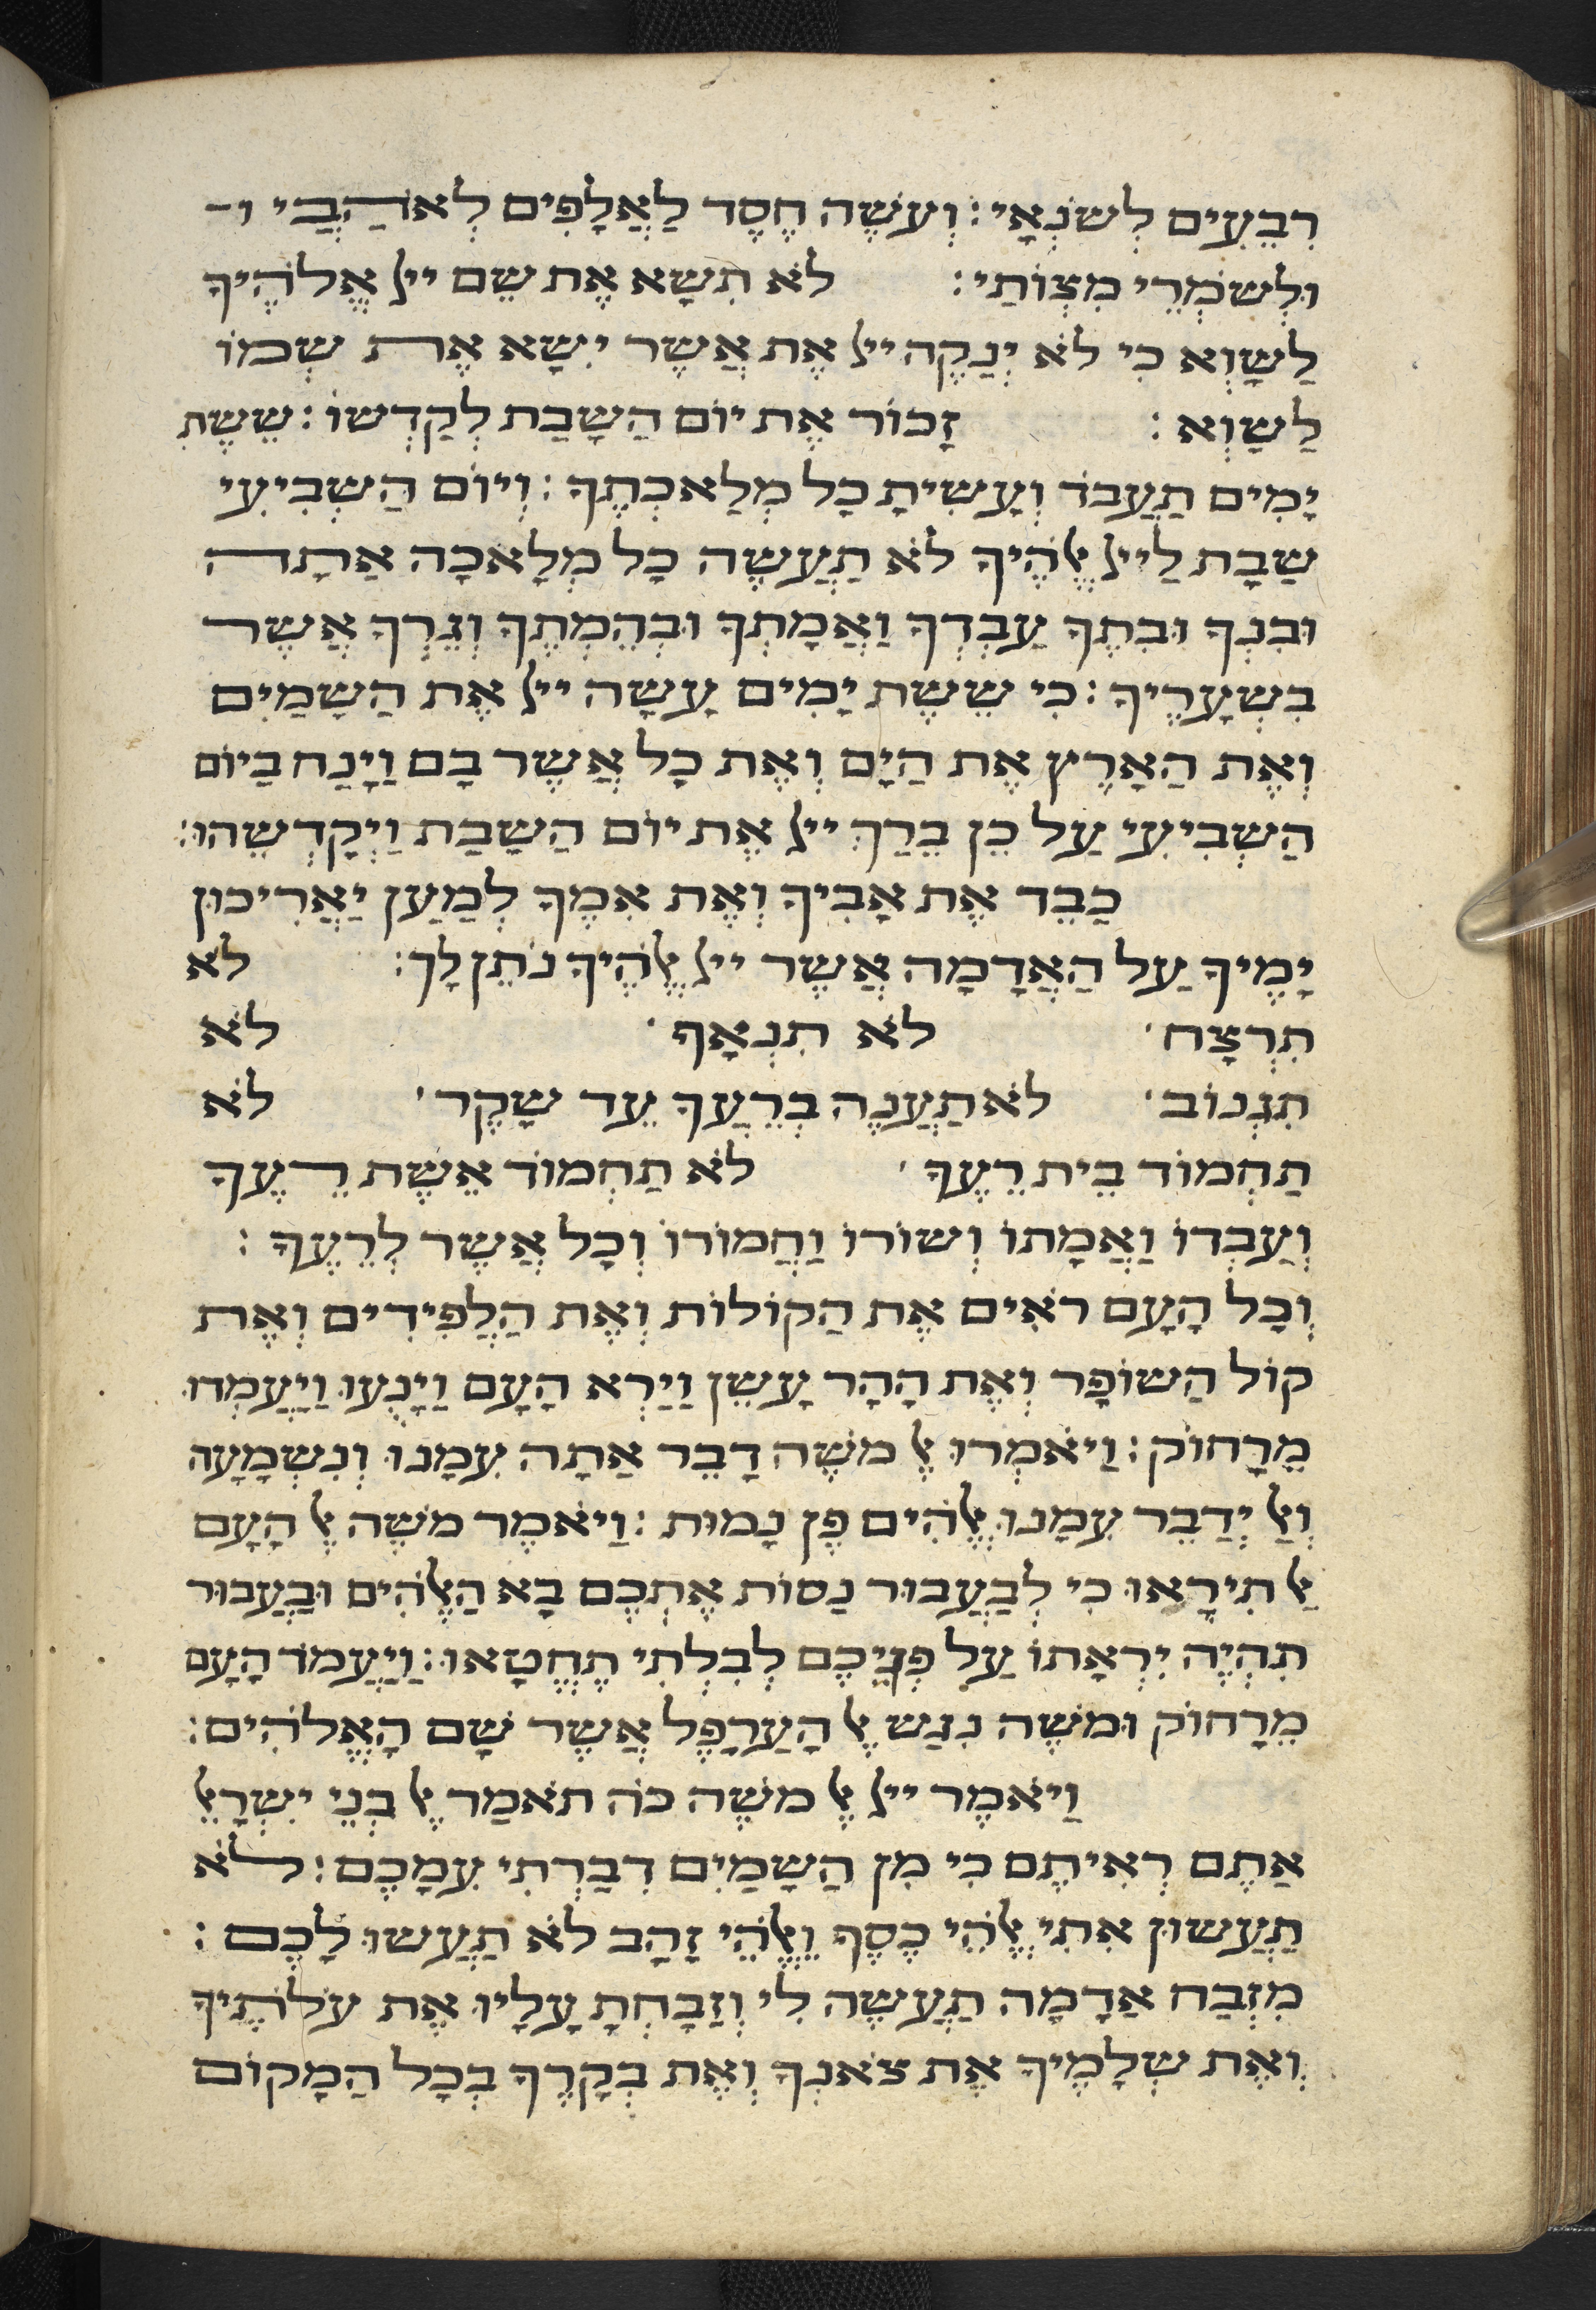 רִבֵעִים לְשֹנְאָי: וְעֹשֶה חֶסֶד לַאֲלָפִים לְאֹהֲבַי ו־
וּלְשֹמְרֵי מִצְוֹתַי: לֹא תִשָא אֶת שֵם ייי אֱלֹהֶיךָ
לַשָוְא כִי לֹא יְנַקֶה ייי אֶת אֲשֶר יִשָא אֶת שְמוֹ
לַשָוְא: זָכוֹר אֶת יוֹם הַשָבַת לְקַדְשוֹ: שֵשֶת
יָמִים תַעֲבֹד וְעָשִיתָ כָל מְלַאכְתֶךָ: וְיוֹם הַשְבִיעִי
שַבָת לַייי אֱלֹהֶיךָ לֹא תַעֲשֶה כָל מְלָאכָה אַתָה
וּבִנְךָ וּבִתֶךָ עַבְדְךָ וַאֲמָתְךָ וּבְהֶמְתֶךָ וְגֵרְךָ אֲשֶר
בִשְעָרֶיךָ: כִי שֵשֶת יָמִים עָשָה ייי אֶת הַשָמַיִם
וְאֶת הָאָרֶץ אֶת הַיָם וְאֶת כָל אֲשֶר בָם וַיָנַח בַיוֹם
הַשְבִיעִי עַל כֵן בֵרַךְ ייי אֶת יוֹם הַשָבַת וַיְקַדְשֵהוּ:
כַבֵד אֶת אָבִיךָ וְאֶת אִמֶךָ לְמַעַן יַאֲרִיכוּן
יָמֶיךָ עַל הַאֲדָמָה אֲשֶר ייי אֱלֹהֶיךָ נֹתֵן לָךְ: לֹא
תִרְצָח׳ לֹא תִנְאָף׳ לֹא
תִגְנוֹב׳ לֹא תַעֲנֶה בְרֵעֲךָ עֵד שָקֶר׳ לֹא
תַחְמוֹד בֵית רֵעֶךָ׳ לֹא תַחְמוֹד אֵשֶת רֵעֶךָ
וְעַבְדוֹ וַאֲמָתוֹ וְשוֹרוֹ וַחֲמוֹרוֹ וְכָל אֲשֶר לְרֵעֶךָ:
וְכָל הָעָם רֹאִים אֶת הַקוֹלוֹת וְאֶת הַלַפִידִים וְאֶת
קוֹל הַשוֹפָר וְאֶת הָהָר עָשֵן וַיַרְא הָעָם וַיָנֻעוּ וַיַעַמְדוּ
מֵרָחוֹק: וַיֹאמְרוּ אֶל מֹשֶה דַבֵר אַתָה עִמָנוּ וְנִשְמָעָה
וְאַל יְדַבֵר עִמָנוּ אֱלֹהִים פֶן נָמוּת: וַיֹאמֶר מֹשֶה אֶל הָעָם
אַל תִירָאוּ כִי לְבַעֲבוּר נַסוֹת אֶתְכֶם בָא הָאֱלֹהִים וּבַעֲבוּר
תִהְיֶה יִרְאָתוֹ עַל פְנֵיכֶם לְבִלְתִי תֶחֱטָאוּ: וַיַעֲמֹד הָעָם
מֵרָחוֹק וּמֹשֶה נִגַש אֶל הָעַרָפֶל אֲשֶר שָם הָאֱלֹהִים:
וַיֹאמֶר ייי אֶל מֹשֶה כֹה תֹאמַר אֶל בְנֵי יִשְרָאֵל
אַתֶם רְאִיתֶם כִי מִן הַשָמַיִם דִבַרְתִי עִמָכֶם: לֹא
תַעֲשוּן אִתִי אֱלֹהֵי כֶסֶף וֵאֱלֹהֵי זָהָב לֹא תַעֲשוּ לָכֶם:
מִזְבַח אַדָמָה תַעֲשֶה לִי וְזָבַחְתָ עָלָיו אֶת עֹלֹתֶיךָ
וְאֶת שְלָמֶיךָ אֶת צֹאנְךָ וְאֶת בְקָרֶךָ בְכָל הַמָקוֹם